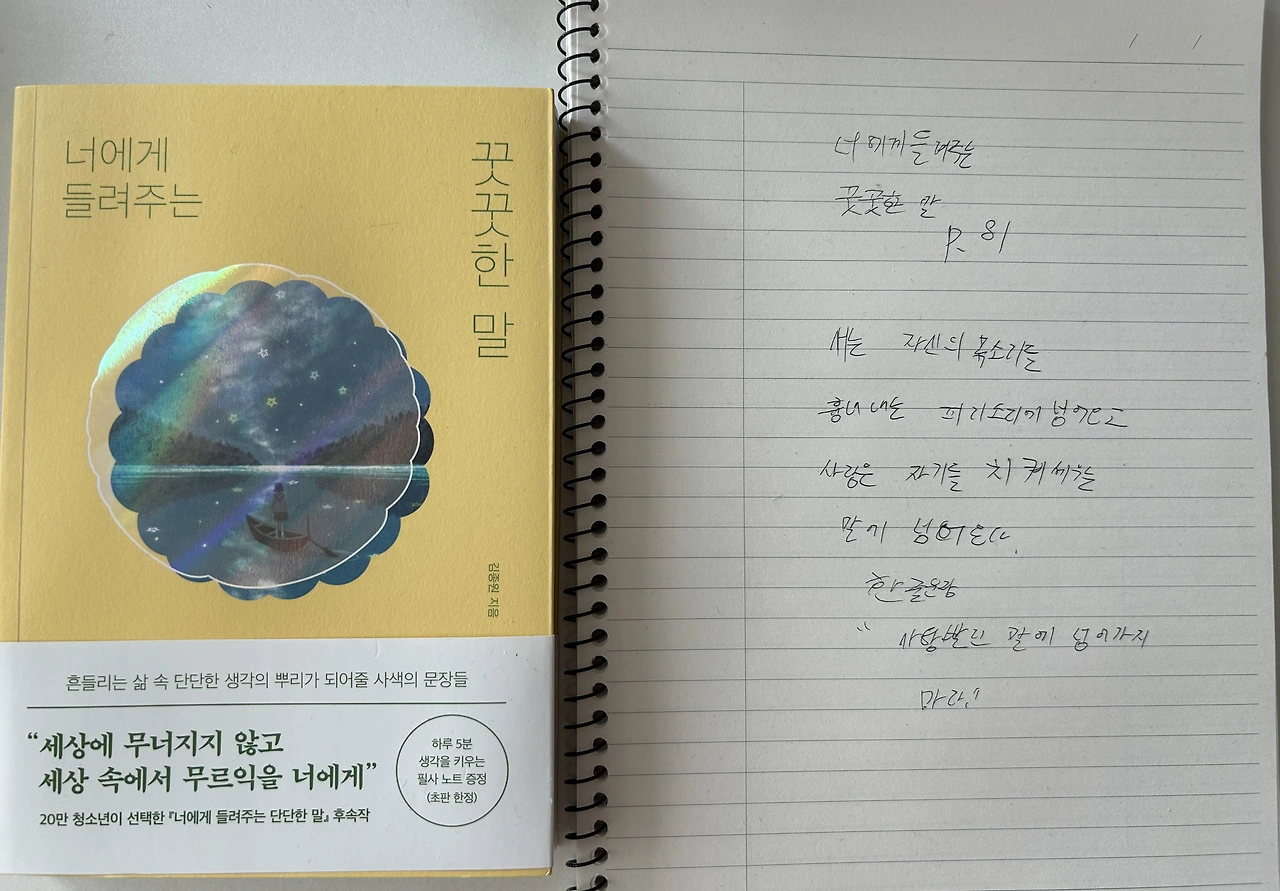 너에게
들려주는
꼿꼿한 말
김종원 지음
흔들리는 삶 속 단단한 생각의 뿌리가 되어줄 사색의 문장들
“세상에 무너지지 않고
세상 속에서 무르익을 너에게”
20만 청소년이 선택한 『너에게 들려주는 단단한 말』 후속작
하루 5분
생각을 키우는
필사 노트 증정
(초판 한정)
/ /
너에게 들려주는
꼿꼿한 말
P. 81
새는 자신의 목소리를
흉내 내는 피리소리에 넘어오고
사람은 자기를 치켜세우는
말에 넘어온다.
한 글
“ 사탕발린 말에 넘어가지
마라.”